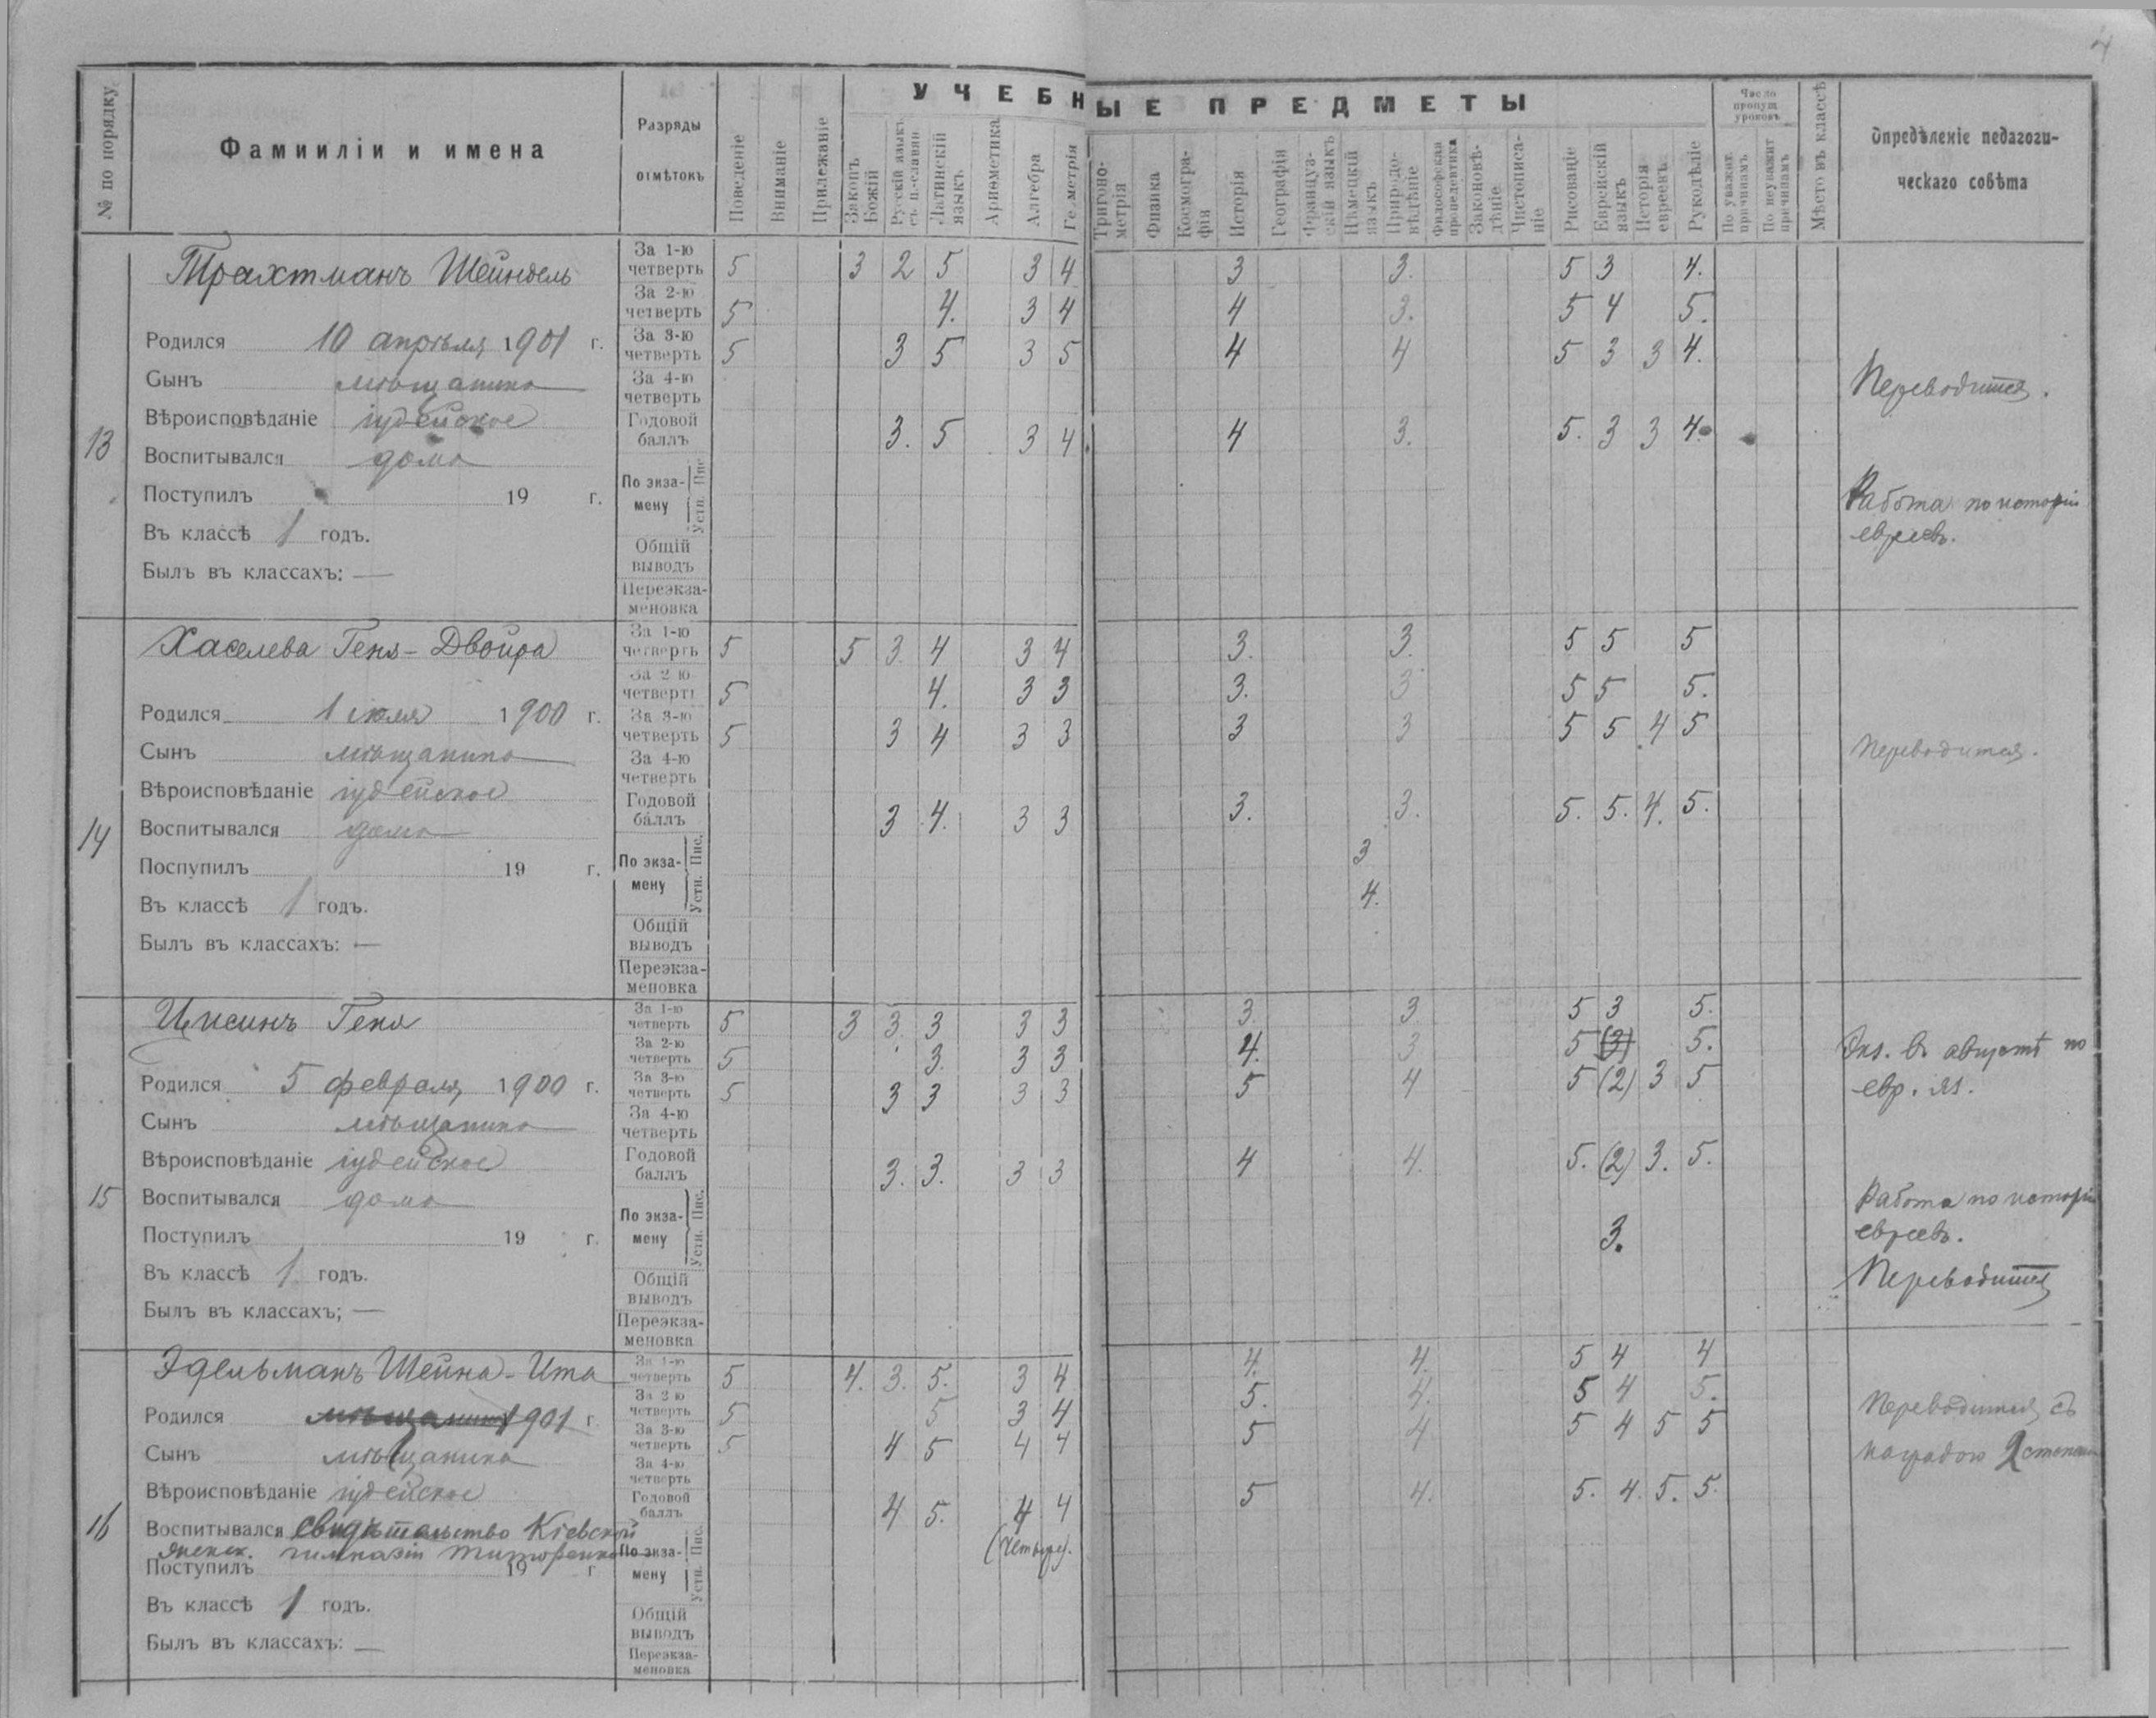 4
№ по порядку
Фамииліи и имена
Разряды
отмѣтокъ
УЧЕБНЫЕ ПРЕДМЕТЫ
Поведеніе
Вниманіе
Прилежаніе
Законъ Божій
Русскій языкъ съ ц.-славян.
Латинскій языкъ
Ариѳметика
Алгебра
Геометрія
Тригоно-метрія
Физика
Космогра-фія
Исторія
Географія
Француз-скій языкъ
Нѣмецкій языкъ
Природо-вѣдѣніе
Философская пропедевтика
Законовѣ-дѣніе
Чистописа-ніе
Рисованіе
Еврейскій языкъ
Исторія евреевъ
Рукодѣліе
Число пропущ уроковъ
По уважит. причинамъ
По неуважит причинамъ
Мѣсто въ классѣ
Опредѣленіе педагоги-
ческаго совѣта
13
Трахтманъ Шейндель
Родился 10 апрѣля 1901 г.
Сынъ мѣщанина
Вѣроисповѣданіе іудейское
Воспитывался дома
Поступилъ 19 г.
Въ классѣ 1 годъ.
Былъ въ классахъ: —
За 1-ю четверть 5 3 2 5 3 4 3 3. 5 3 4.
За 2-ю четверть 5 4. 3 4 4 3. 5 4 5.
За 3-ю четверть 5 3 5 3 5 4 4 5 3 3 4.
За 4-ю четверть
Годовой баллъ 3. 5 3 4 4 3. 5. 3 3 4.
По экза-мену Пис. Устн.
Общій выводъ
Переэкза-меновка
Переводится.
Работа по исторіи
евреевъ.
14
Хаселева Геня-Двойра
Родился 1 іюля 1900 г.
Сынъ мѣщанина
Вѣроисповѣданіе іудейское
Воспитывался дома
Поспупилъ 19 г.
Въ классѣ 1 годъ.
Былъ въ классахъ: —
За 1-ю четверть 5 5 3. 4 3 4 3. 3. 5 5 5
За 2-ю четверть 5 4. 3 3 3. 3 5 5 5.
За 3-ю четверть 5 3 4 3 3 3 3 5 5 4 5
За 4-ю четверть
Годовой баллъ 3 4. 3 3 3. 3. 5. 5. 4. 5.
По экза-мену Пис. 3
Устн. 4.
Общій выводъ
Переэкза-меновка
Переводится.
15
Цисинъ Геня
Родился 5 февраля 1900 г.
Сынъ мѣщанина
Вѣроисповѣданіе іудейское
Воспитывался дома
Поступилъ 19 г.
Въ классѣ 1 годъ.
Былъ въ классахъ; —
За 1-ю четверть 5 3 3. 3 3 3 3. 3. 5 3 5.
За 2-ю четверть 5 3. 3 3 4. 3 5 (3) 5.
За 3-ю четверть 5 3 3 3 3 5 4 5 (2) 3 5
За 4-ю четверть
Годовой баллъ 3. 3. 3 3 4 4. 5. (2) 3. 5.
По экза-мену Пис. Устн. 3.
Общій выводъ
Переэкза-меновка
Экз. въ августѣ по
евр. яз.
Работа по исторіи
евреевъ.
Переводится
16
Эдельманъ Шейна-Ита
Родился мѣщанина 1901 г.
Сынъ мѣщанина
Вѣроисповѣданіе іудейское
Воспитывался свидѣтельство Кіевской
женск. гимназіи
Поступилъ 19 г
Въ классѣ 1 годъ.
Былъ въ классахъ: —
За 1-ю четверть 5 4. 3. 5. 3 4 4. 4. 5 4 4
За 2 ю четверть 5 5 3 4 5. 4. 5 4 5.
За 3-ю четверть 5 4 5 4 4 5 4 5 4 5 5
За 4-ю четверть
Годовой баллъ 4 5. 4 4 5 4. 5. 4. 5. 5.
(четыре).
По экза-мену Пис. Устн.
Общій выводъ
Переэкза-меновка
Переводится съ
наградою 2 степени